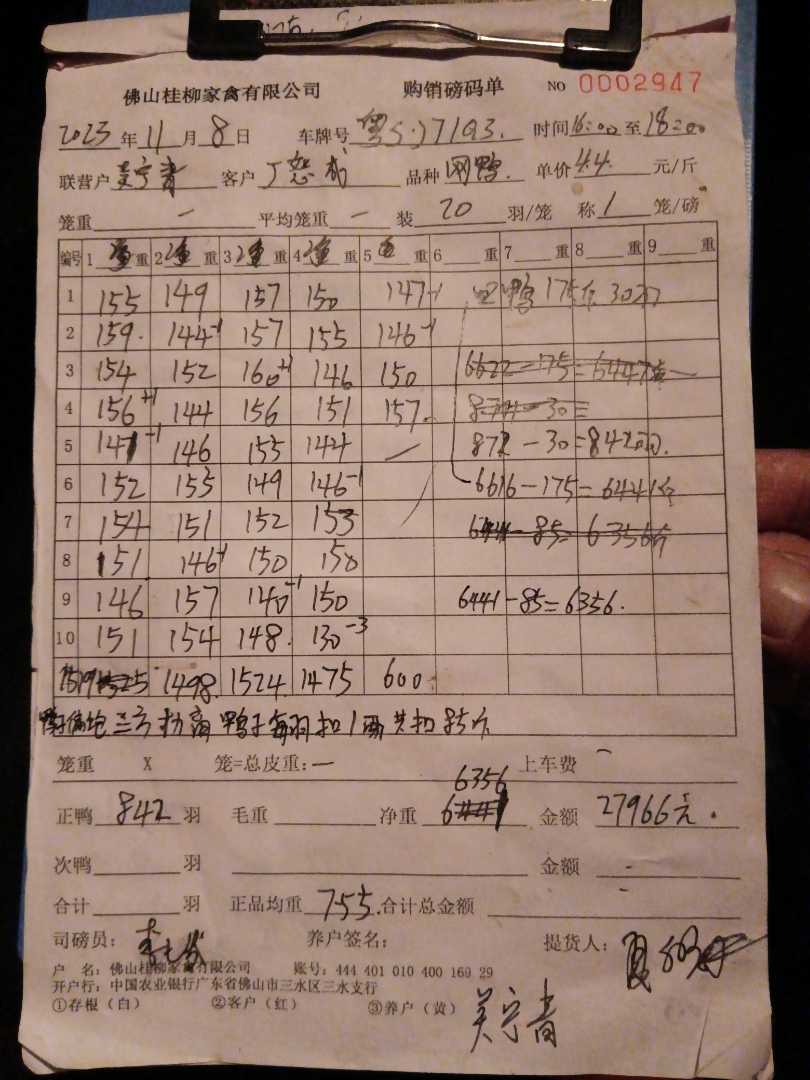 佛山桂柳家禽有限公司 购销磅码单 NO 0002947
2023年11月8日 车牌号 粤S·J71Q3. 时间16:00至18:00
联营户 客户 丁 品种 单价4.4元/斤
笼重 — 平均笼重 — 装 20 羽/笼 称 1 笼/磅
编号 1 重 2 重 3 重 4 重 5 重 6 重 7 重 8 重 9 重
1 155 149 157 150 147-1 鸭175斤30羽
2 159. 144-1 157 155 146-1
3 154 152 160+1 146 150 6622-175=6447斤
4 156+1 144 156 151 157. -30=
5 147-1 146 155 144 — 872-30=842羽.
6 152 153 149 146-1 6616-175=6441斤
7 154 151 152 153 6441-85=6356斤
8 151 146+1 150 150
9 146 157 140-1 150 6441-85=6356.
10 151 154 148. 130-3
1519 1498. 1524 1475 600
三方 鸭子每羽扣1两共扣85斤
笼重 X 笼=总皮重:— 上车费 —
6356
正鸭 842 羽 毛重 净重 6441 金额 27966元.
次鸭 羽 金额 -
合计 羽 正品均重 7.55. 合计总金额 -
司磅员: 养户签名: 提货人:
户 名:佛山桂柳家禽有限公司 账号:444 401 010 400 169 29
开户行:中国农业银行广东省佛山市三水区三水支行
①存根(白) ②客户(红) ③养户(黄)